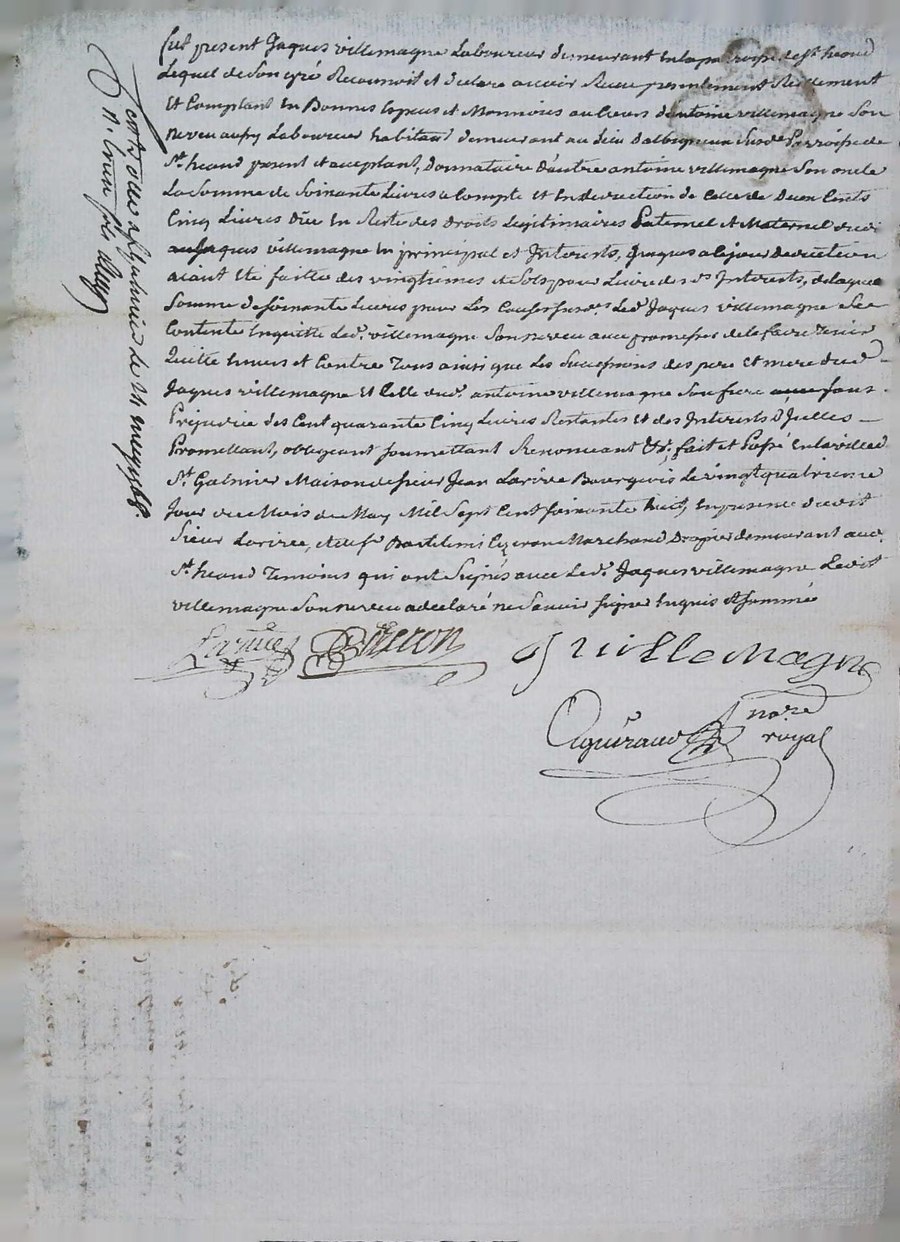 fut present Jaques villemagne Laboureur demeurant en la parroisse de st. heand
Lequel de Son gré Reconnoit et declare avoir Receu presentement Reellement
Et Comptant En Bonnes Especes et Monnoies au Cours d'antoine villemagne Son
neveu aussy Laboureur habitant demeurant au Lieu Dalbigneux Susde. Parroisse de
St. heand present et acceptant, donnataire d'autre antoine villemagne Son oncle
La Somme de Soixante Livres a Compte et En deduction de Celle de Deux Cents
Cinq Livres düe En Reste des Droits Legitimaires Paternel et Maternel dudi
Jaques villemagne En principal et Interets, Jusques a ce jour deduction
aiant été faitte des vingtiemes et Sols pour Livre des ds. Interets, de laque
Somme de soixante Livres pour Les Causes susdes. Led. Jaques villemagne Se
Contente Enquitte Led. villemagne Son neveu avec promesses de le faire Tenir
Quitte Envers et Contre Tous ainsi que Les Successions des pere et mere dud.
Jaques villemagne Et Celle dud. antoine villemagne Son frere sans
Prejudice des Cent quarante Cinq Livres Restantes Et des Interets d'Icelles
Promettant, obligeant soumettant Renonceant &c. fait et Passé En la ville de
St. Galmier Maison de sieur Jean Larive Bourgeois Le vingt quatrieme
Jour du Mois de May Mil Sept Cent soixante huit, En presence dudit
Sieur Larive, et de sr. Bartelemi Cizeron Marchand Drapier demeurant aud.
St. heand Temoins qui ont Signés avec Led. Jaques villemagne Ledit
villemagne Son neveu a declaré ne Scavoir signer Enquis et sommé
Larive Cizeron J villemagne
nore
royal